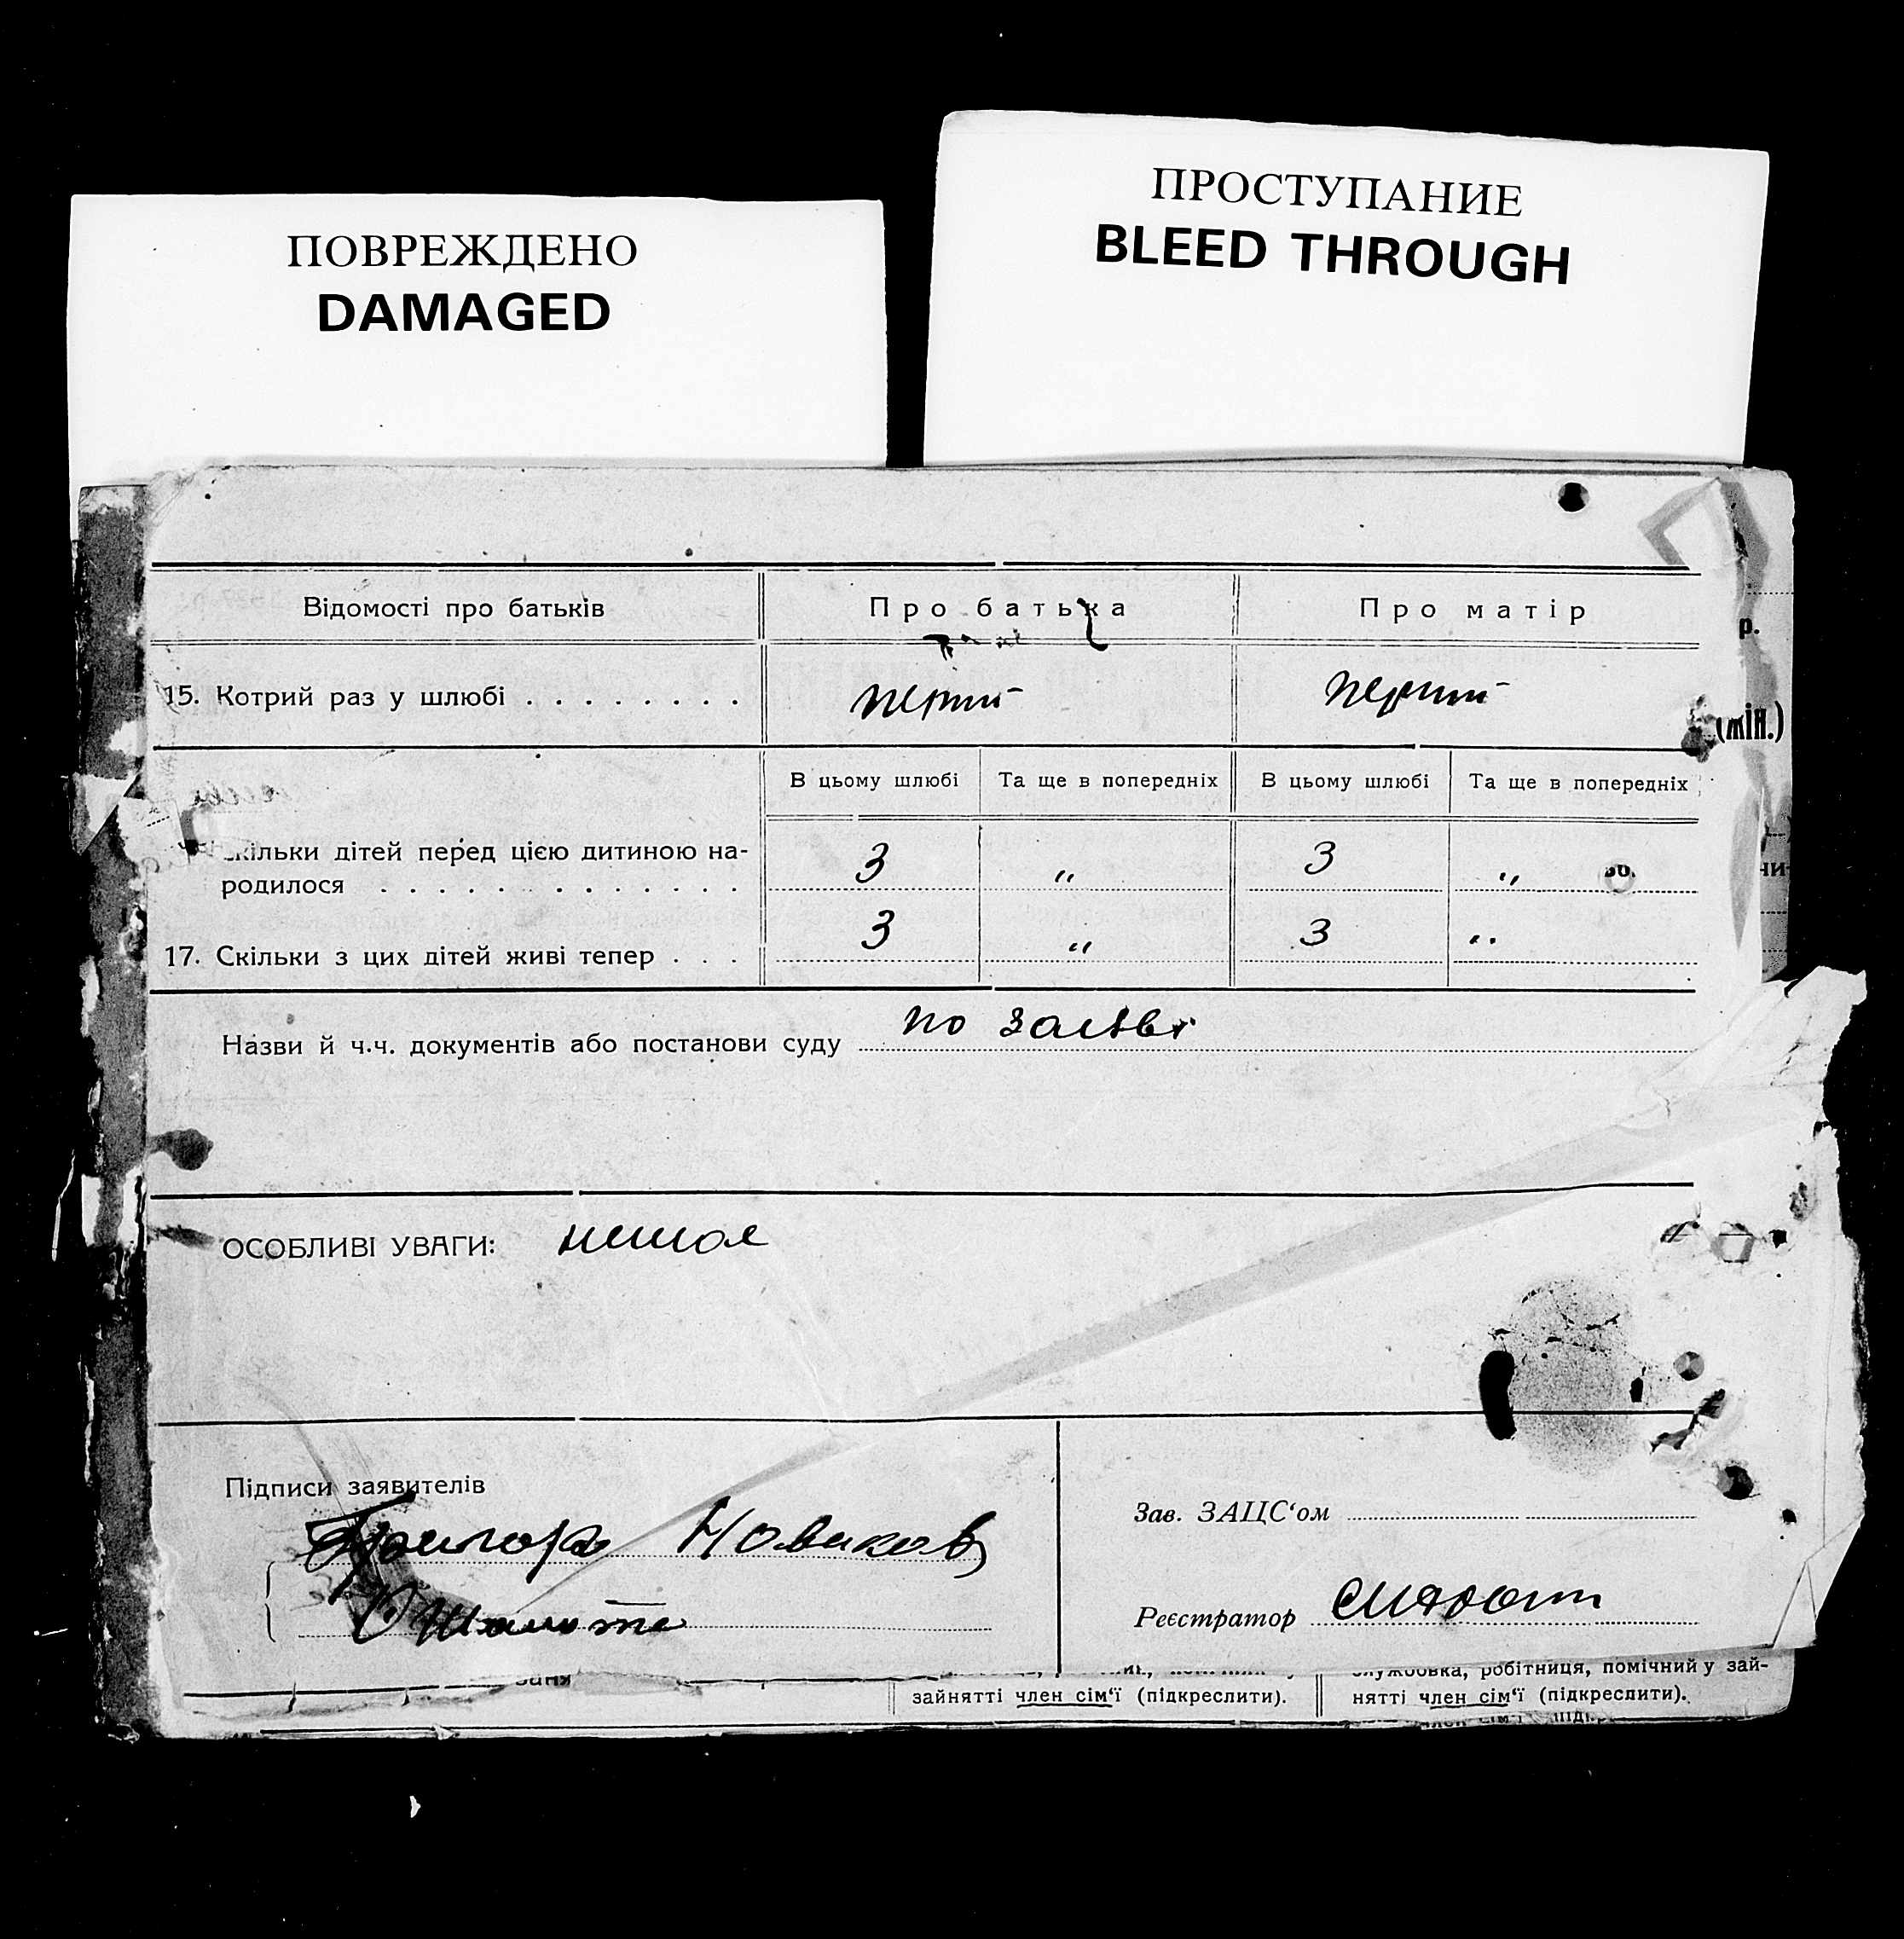 ПОВРЕЖДЕНО
DAMAGED
ПРОСТУПАНИЕ
BLEED THROUGH
Відомості про батьків
Про батька
Про матір
р.
15. Котрий раз у шлюбі . . . . . . . .
перший
перший
(жін.)
В цьому шлюбі
Та ще в попередніх
В цьому шлюбі
Та ще в попередніх
скільки дітей перед цією дитиною на-
родилося . . . . . . . . . . . . .
3
„
3
„
17. Скільки з цих дітей живі тепер . . .
3
„
3
„
Назви й ч.ч. документів або постанови суду по заяві
ОСОБЛИВІ УВАГИ: немає
Підписи заявителів
Григорій Новиков
Зав. ЗАЦС‘ом
Реєстратор
службовка, робітниця, помічний у зай-
зайнятті член сім‘ї (підкреслити).
нятті член сім‘ї (підкреслити).